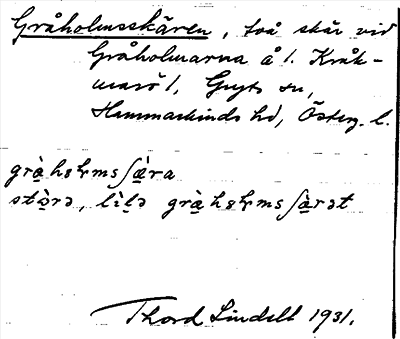 Gråholmsskären, två skär vid
Gråholmarna å f. Kråk-
marö f, Gryts sn,
Hammarkinds hd, Österg. l.
grὰhɞɽmsʃæ̀ra
stò̱rə, lìḻə grὰhɞɽmsʃæ̀rət
Thord Lindell 1931.